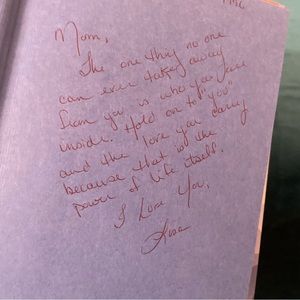 1996
Mom,
The one thing no one
can ever take away
from you is who you are
inside. Hold on to "you"
and the love you carry
because that is the
power of life itself.
I Love You,